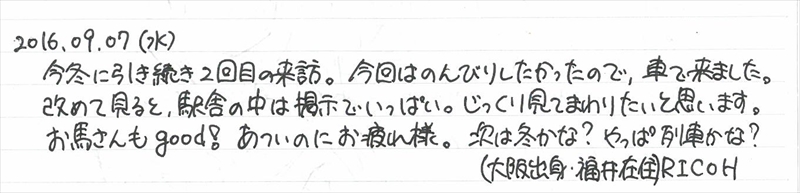 2016.09.07(水)
今冬に引き続き2回目の来訪。今回はのんびりしたかったので,車で来ました。
改めて見ると,駅舎の中は掲示でいっぱい。じっくり見てまわりたいと思います。
お馬さんもgood! あついのにお疲れ様。次は冬かな?やっぱ列車かな?
(大阪出身・福井在住)RICOH